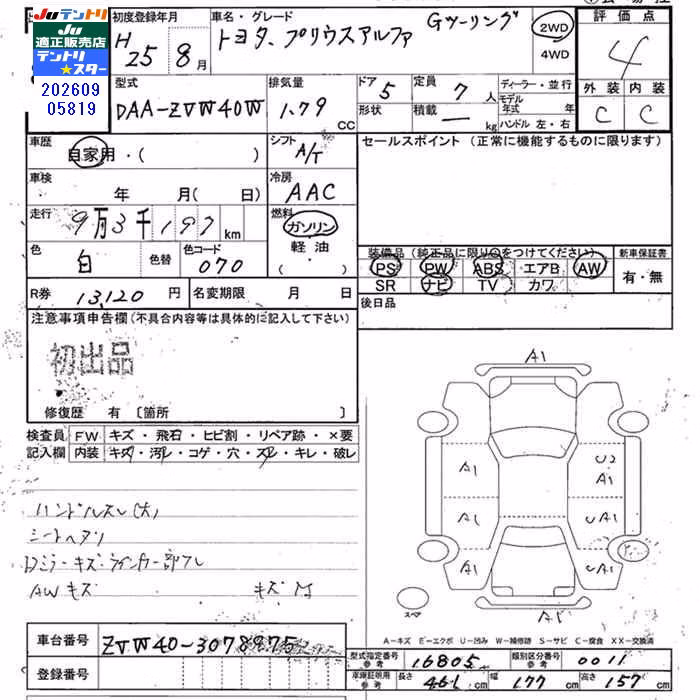 JUテントリ
適正販売店
テントリ
★スター
202609
05819
初度登録年月
H25 8月
車名・グレード
トヨタ、プリウスアルファ Gツーリング
2WD
4WD
評価点
4
外装 内装
C C
型式
DAA-ZVW40W
排気量
1.79 CC
ドア 5
形状
定員 7人
積載 ー kg
ディーラー・並行
モデル年式 年
ハンドル 左・右
車歴
自家用・( )
シフト
A/T
セールスポイント (正常に機能するものに限ります)
車検
年 月( 日)
冷房
AAC
走行
9万3千197km
燃料
ガソリン
軽油
( ・ )
色
白
色替
色コード
070
装備品 (純正品に限り○をつけてください)
PS PW ABS エアB AW
SR ナビ TV カワ
新車保証書
有・無
R券 13,120円
名変期限 月 日
後日品
注意事項申告欄(不具合内容等は具体的に記入して下さい)
初出品
修復歴 有 〔箇所 〕
検査員記入欄
FW キズ・飛石・ヒビ割・リペア跡・×要
内装 キズ・汚レ・コゲ・穴・スレ・キレ・破レ
ハンドルスレ(大)
シートヘタリ
AWキズ
A1
A1
A1
A1
A1
UA1
スペア
A-キズ E-エクボ U-凹み W-補修跡 S-サビ C-腐食 XX-交換済
車台番号 ZVW40-3078975
登録番号
型式指定番号 参考 16805
類別区分番号 参考 0011
車庫証明用 参考 長さ 461cm 幅 177cm 高さ 157cm